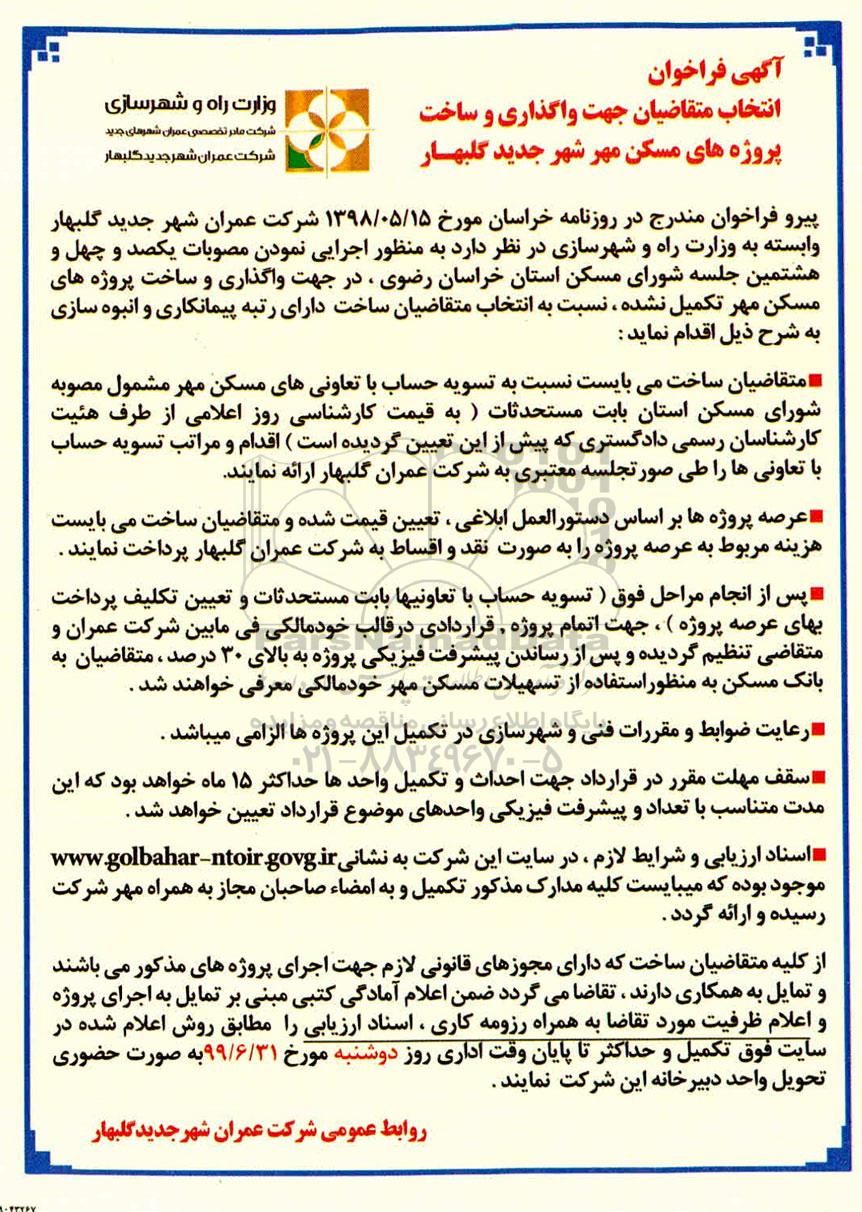 آگهی فراخوان
انتخاب متقاضیان جهت واگذاری و ساخت
پروژه های مسکن مهر شهر جدید گلبهـــار
وزارت راه و شهرسازی
شرکت مادر تخصصی عمران شهرهای جدید
شرکت عمران شهر جدید گلبهار
پیرو فراخوان مندرج در روزنامه خراسان مورخ ۱۳۹۸/۰۵/۱۵ شرکت عمران شهر جدید گلبهار
وابسته به وزارت راه و شهرسازی در نظر دارد به منظور اجرایی نمودن مصوبات یکصد و چهل و
هشتمین جلسه شورای مسکن استان خراسان رضوی ، در جهت واگذاری و ساخت پروژه های
مسکن مهر تکمیل نشده ، نسبت به انتخاب متقاضیان ساخت دارای رتبه پیمانکاری و انبوه سازی
به شرح ذیل اقدام نماید :
■ متقاضیان ساخت می بایست نسبت به تسویه حساب با تعاونی های مسکن مهر مشمول مصوبه
شورای مسکن استان بابت مستحدثات ( به قیمت کارشناسی روز اعلامی از طرف هئیت
کارشناسان رسمی دادگستری که پیش از این تعیین گردیده است ) اقدام و مراتب تسویه حساب
با تعاونی ها را طی صورتجلسه معتبری به شرکت عمران گلبهار ارائه نمایند.
■ عرصه پروژه ها بر اساس دستورالعمل ابلاغی ، تعیین قیمت شده و متقاضیان ساخت می بایست
هزینه مربوط به عرصه پروژه را به صورت نقد و اقساط به شرکت عمران گلبهار پرداخت نمایند .
■ پس از انجام مراحل فوق ( تسویه حساب با تعاونیها بابت مستحدثات و تعیین تکلیف پرداخت
بهای عرصه پروژه ) ، جهت اتمام پروژه ، قراردادی درقالب خودمالکی فی مابین شرکت عمران و
متقاضی تنظیم گردیده و پس از رساندن پیشرفت فیزیکی پروژه به بالای ۳۰ درصد ، متقاضیان به
بانک مسکن به منظوراستفاده از تسهیلات مسکن مهر خودمالکی معرفی خواهند شد .
پایگاه اطلاع رسانی مناقصه و مزایده
■ رعایت ضوابط و مقررات فنی و شهرسازی در تکمیل این پروژه ها الزامی میباشد .
۰۲۱-۸۸۳۴۹۶۷۰-۵
■ سقف مهلت مقرر در قرارداد جهت احداث و تکمیل واحد ها حداکثر ۱۵ ماه خواهد بود که این
مدت متناسب با تعداد و پیشرفت فیزیکی واحدهای موضوع قرارداد تعیین خواهد شد .
■ اسناد ارزیابی و شرایط لازم ، در سایت این شرکت به نشانی www.golbahar-ntoir.govg.ir
موجود بوده که میبایست کلیه مدارک مذکور تکمیل و به امضاء صاحبان مجاز به همراه مهر شرکت
رسیده و ارائه گردد .
از کلیه متقاضیان ساخت که دارای مجوزهای قانونی لازم جهت اجرای پروژه های مذکور می باشند
و تمایل به همکاری دارند ، تقاضا می گردد ضمن اعلام آمادگی کتبی مبنی بر تمایل به اجرای پروژه
و اعلام ظرفیت مورد تقاضا به همراه رزومه کاری ، اسناد ارزیابی را مطابق روش اعلام شده در
سایت فوق تکمیل و حداکثر تا پایان وقت اداری روز دوشنبه مورخ ۹۹/۶/۳۱ به صورت حضوری
تحویل واحد دبیرخانه این شرکت نمایند .
روابط عمومی شرکت عمران شهر جدید گلبهار